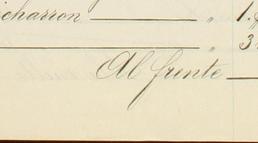 charron " 1.
" 3
Al frente